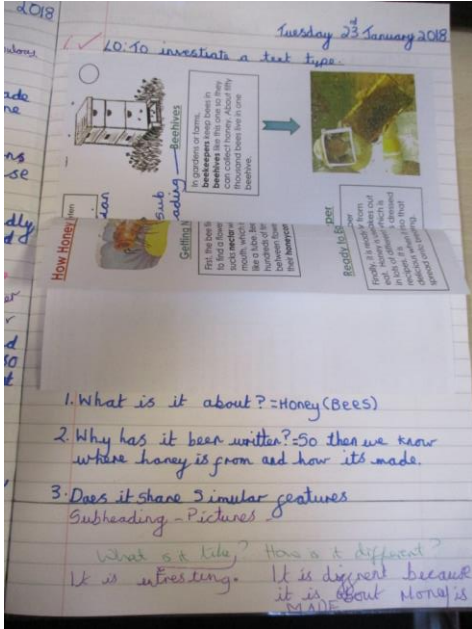 2018
Tuesday 23rd January 2018
LO: To investiate a text type.
ade
ne
ns
se
dly
d
er
r
d
so
t
Beehives
In gardens or farms,
beekeepers keep bees in
beehives like this one so they
can collect honey. About fifty
thousand bees live in one
beehive.
sub
ading
How Honey
Getting
First, the bee fl
to find a flowe
sucks nectar
mouth, which
like a tube. Be
hundreds of tr
between flowe
their honeycom
Ready to
per
Finally, it is read
eat. Honey is
in lots of differe
recipes. It is
delicious when
spread onto
1. What is it about? = Honey (Bees)
2. Why has it been written? = So then we know
where honey is from and how its made.
3. Does it share Simular features
Subheading - Pictures -
What is it like? How is it different?
It is intresting. It is diffrent because
it is about Honey is
MADE